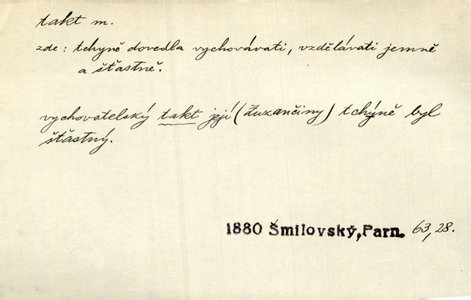 takt m.
zde: tchyně dovedla vychovávati, vzdělávati jemně
a šťastně.
vychovatelský takt její (Zuzančiny) tchýně byl
šťastný.
1880 Šmilovský, Parn. 63, 28.